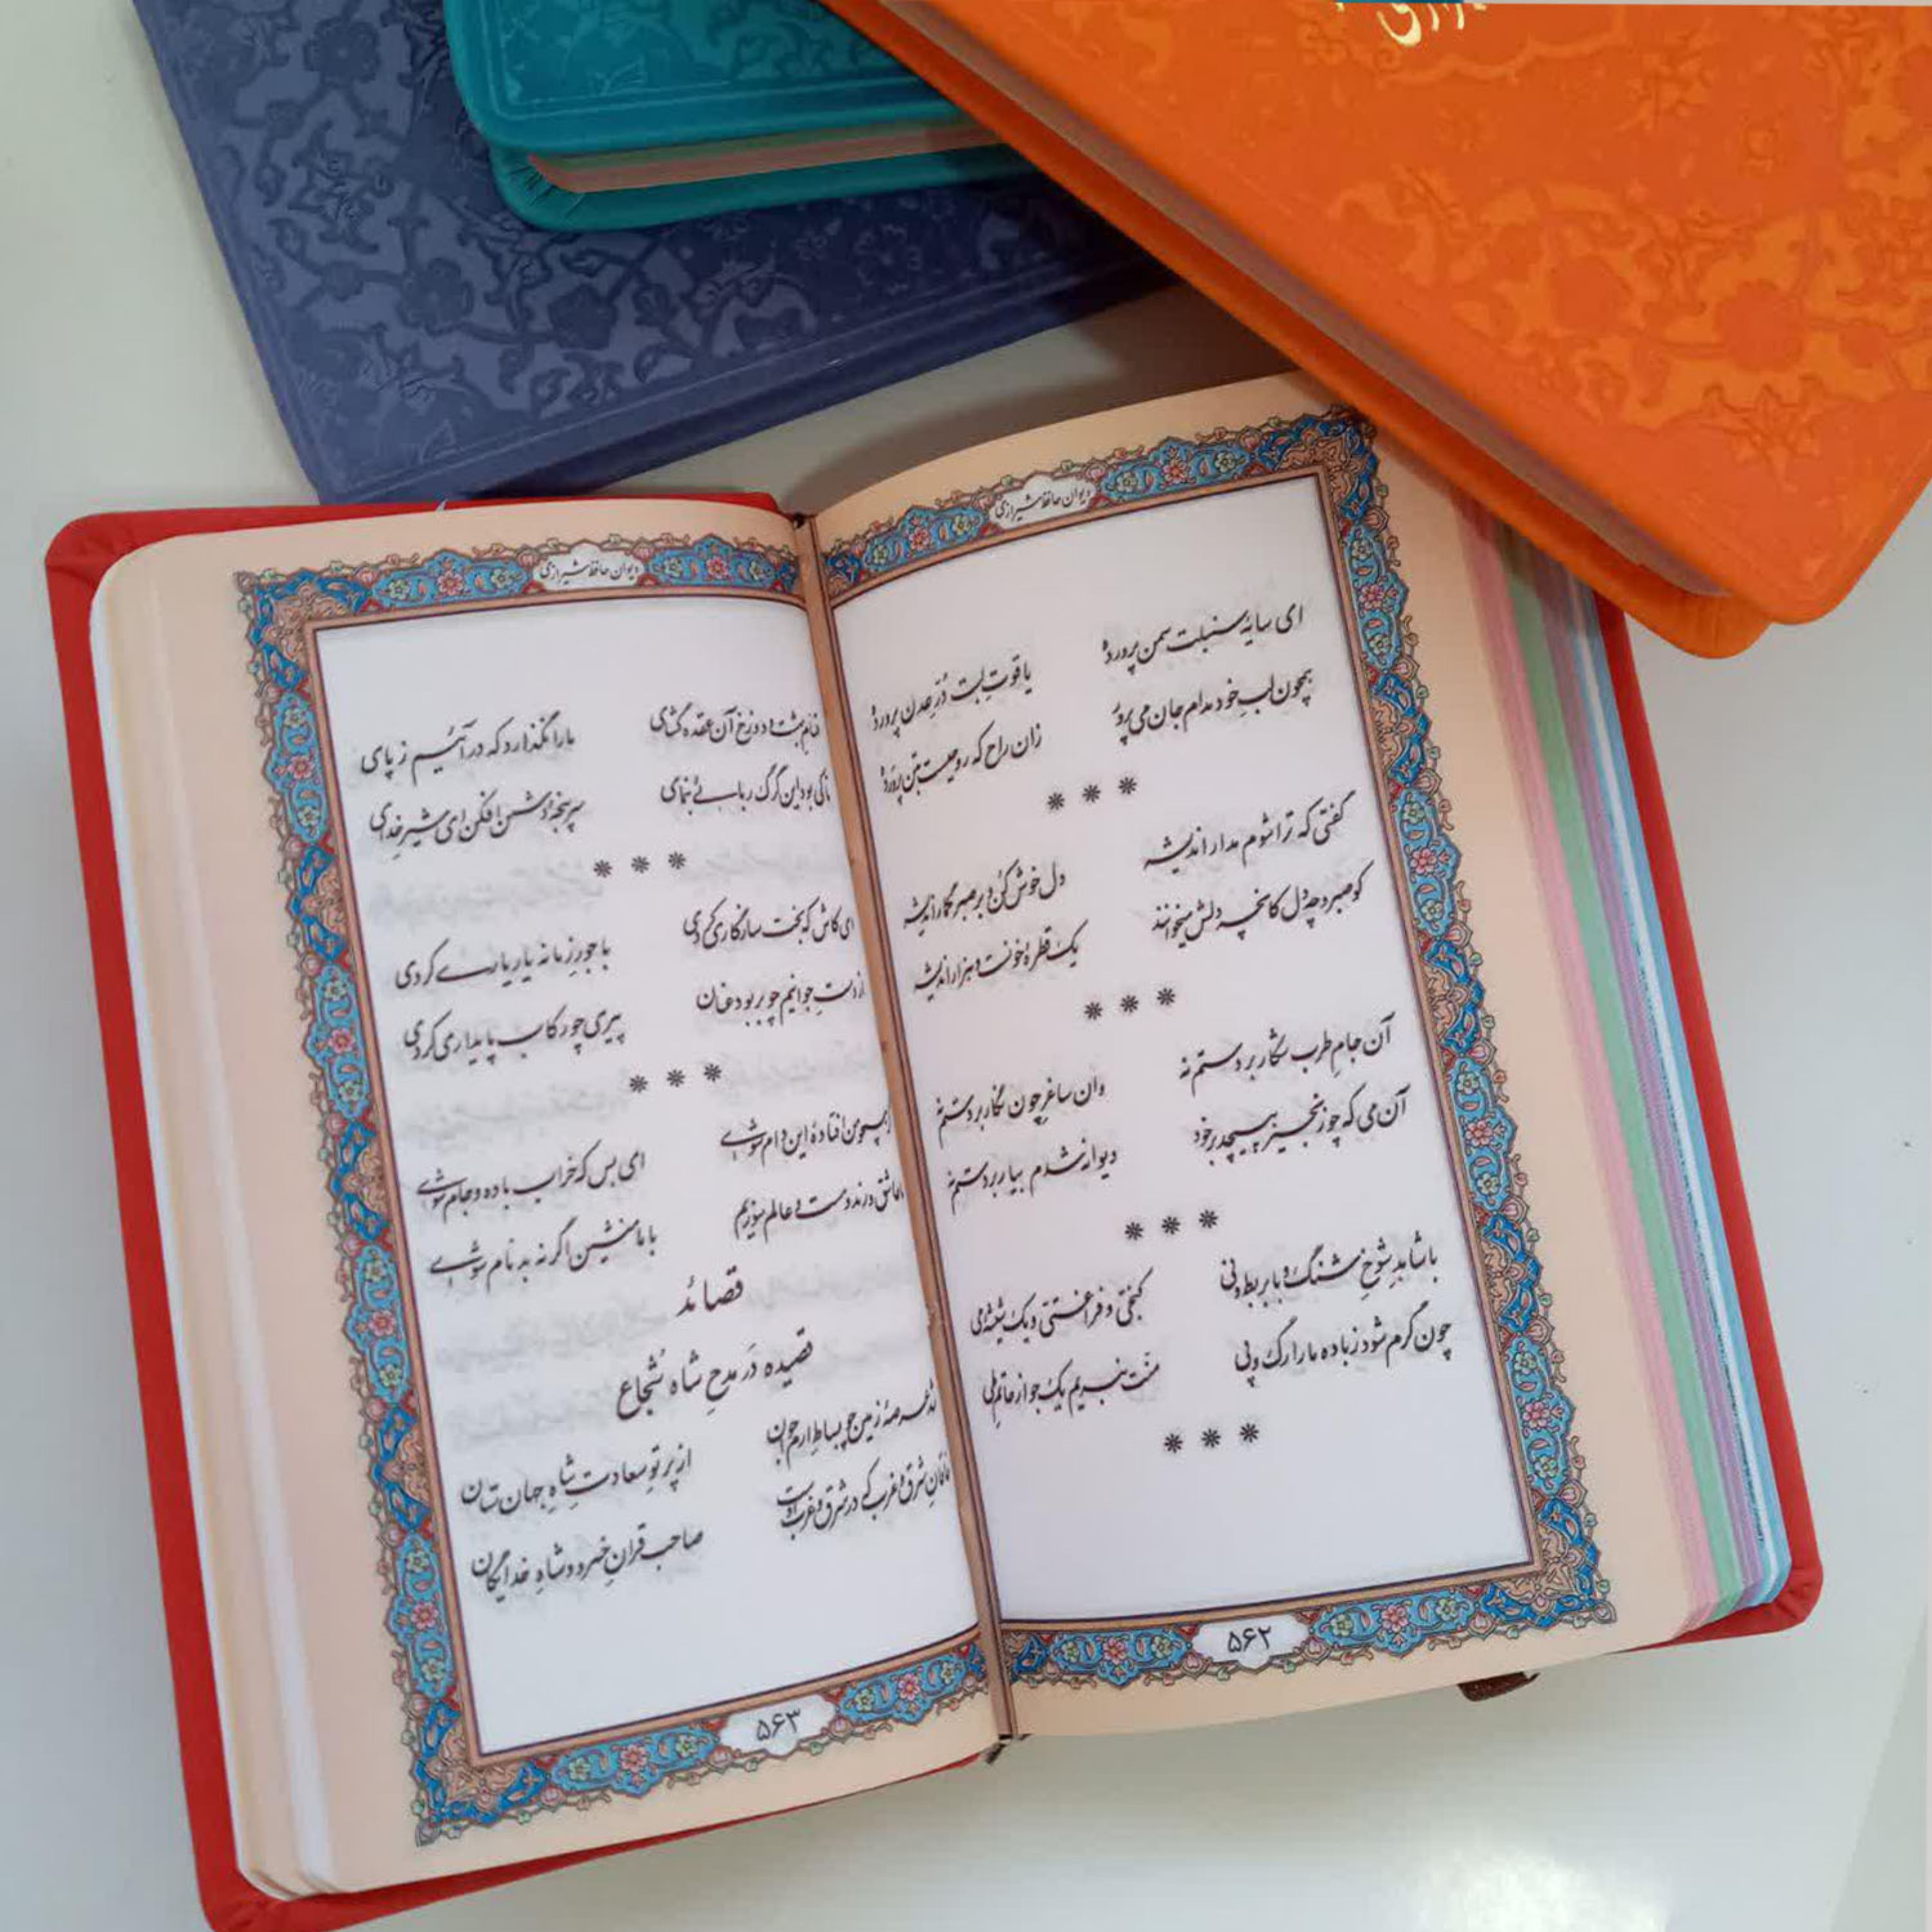 دیوان حافظ شیرازی
ای سایهٔ سنبلت سمن پرورده
یاقوتِ لبت دُرِّ عدن پرورده
همچون لبِ خود مدام جان می‌پرور
زان راح که روحیست بتن پرورده
***
گفتی که ترا شوم مدار اندیشه
دل خوش کن و بر صبر گمار اندیشه
کو صبر و چه دل کانچه دلش میخوانند
یک قطرهٔ خونست و هزار اندیشه
***
آن جامِ طرب شکار بر دستم نه
وان ساغرِ چون نگار بر دستم نه
آن می که چو زنجیر بپیچد بر خود
دیوانه شدم بیار بر دستم نه
***
با شاهدِ شوخِ شنگ و با بربط و نی
کنجی و فراغتی و یک شیشهٔ می
چون گرم شود ز باده ما را رگ و پی
منّت نبریم یک جو از حاتمِ طی
***
۵۶۲
دیوان حافظ شیرازی
قسام بهشت و دوزخ آن عقده گشای
ما را نگذارد که در آئیم ز پای
تا کی بود این گرگ ربائی بنمای
سرپنجهٔ دشمن افکن ای شیرِ خدای
***
ای کاش که بخت سازگاری کردی
با جورِ زمانه یار یاری کردی
از دستِ جوانیم چو بربود عنان
پیری چو رکاب پایداری کردی
***
گر همچو من افتادهٔ این دام شوی
ای بس که خرابِ باده و جام شوی
ما عاشق و رند و مست و عالم سوزیم
با ما منشین اگر نه بدنام شوی
قصائد
قصیده در مدحِ شاه شُجاع
شد عرصهٔ زمین چو بساطِ ارم جوان
از پرتوِ سعادتِ شاهِ جهان ستان
خاقانِ شرق و غرب که در شرق و غرب اوست
صاحب قرانِ خسرو و شاهِ خدایگان
۵۶۳